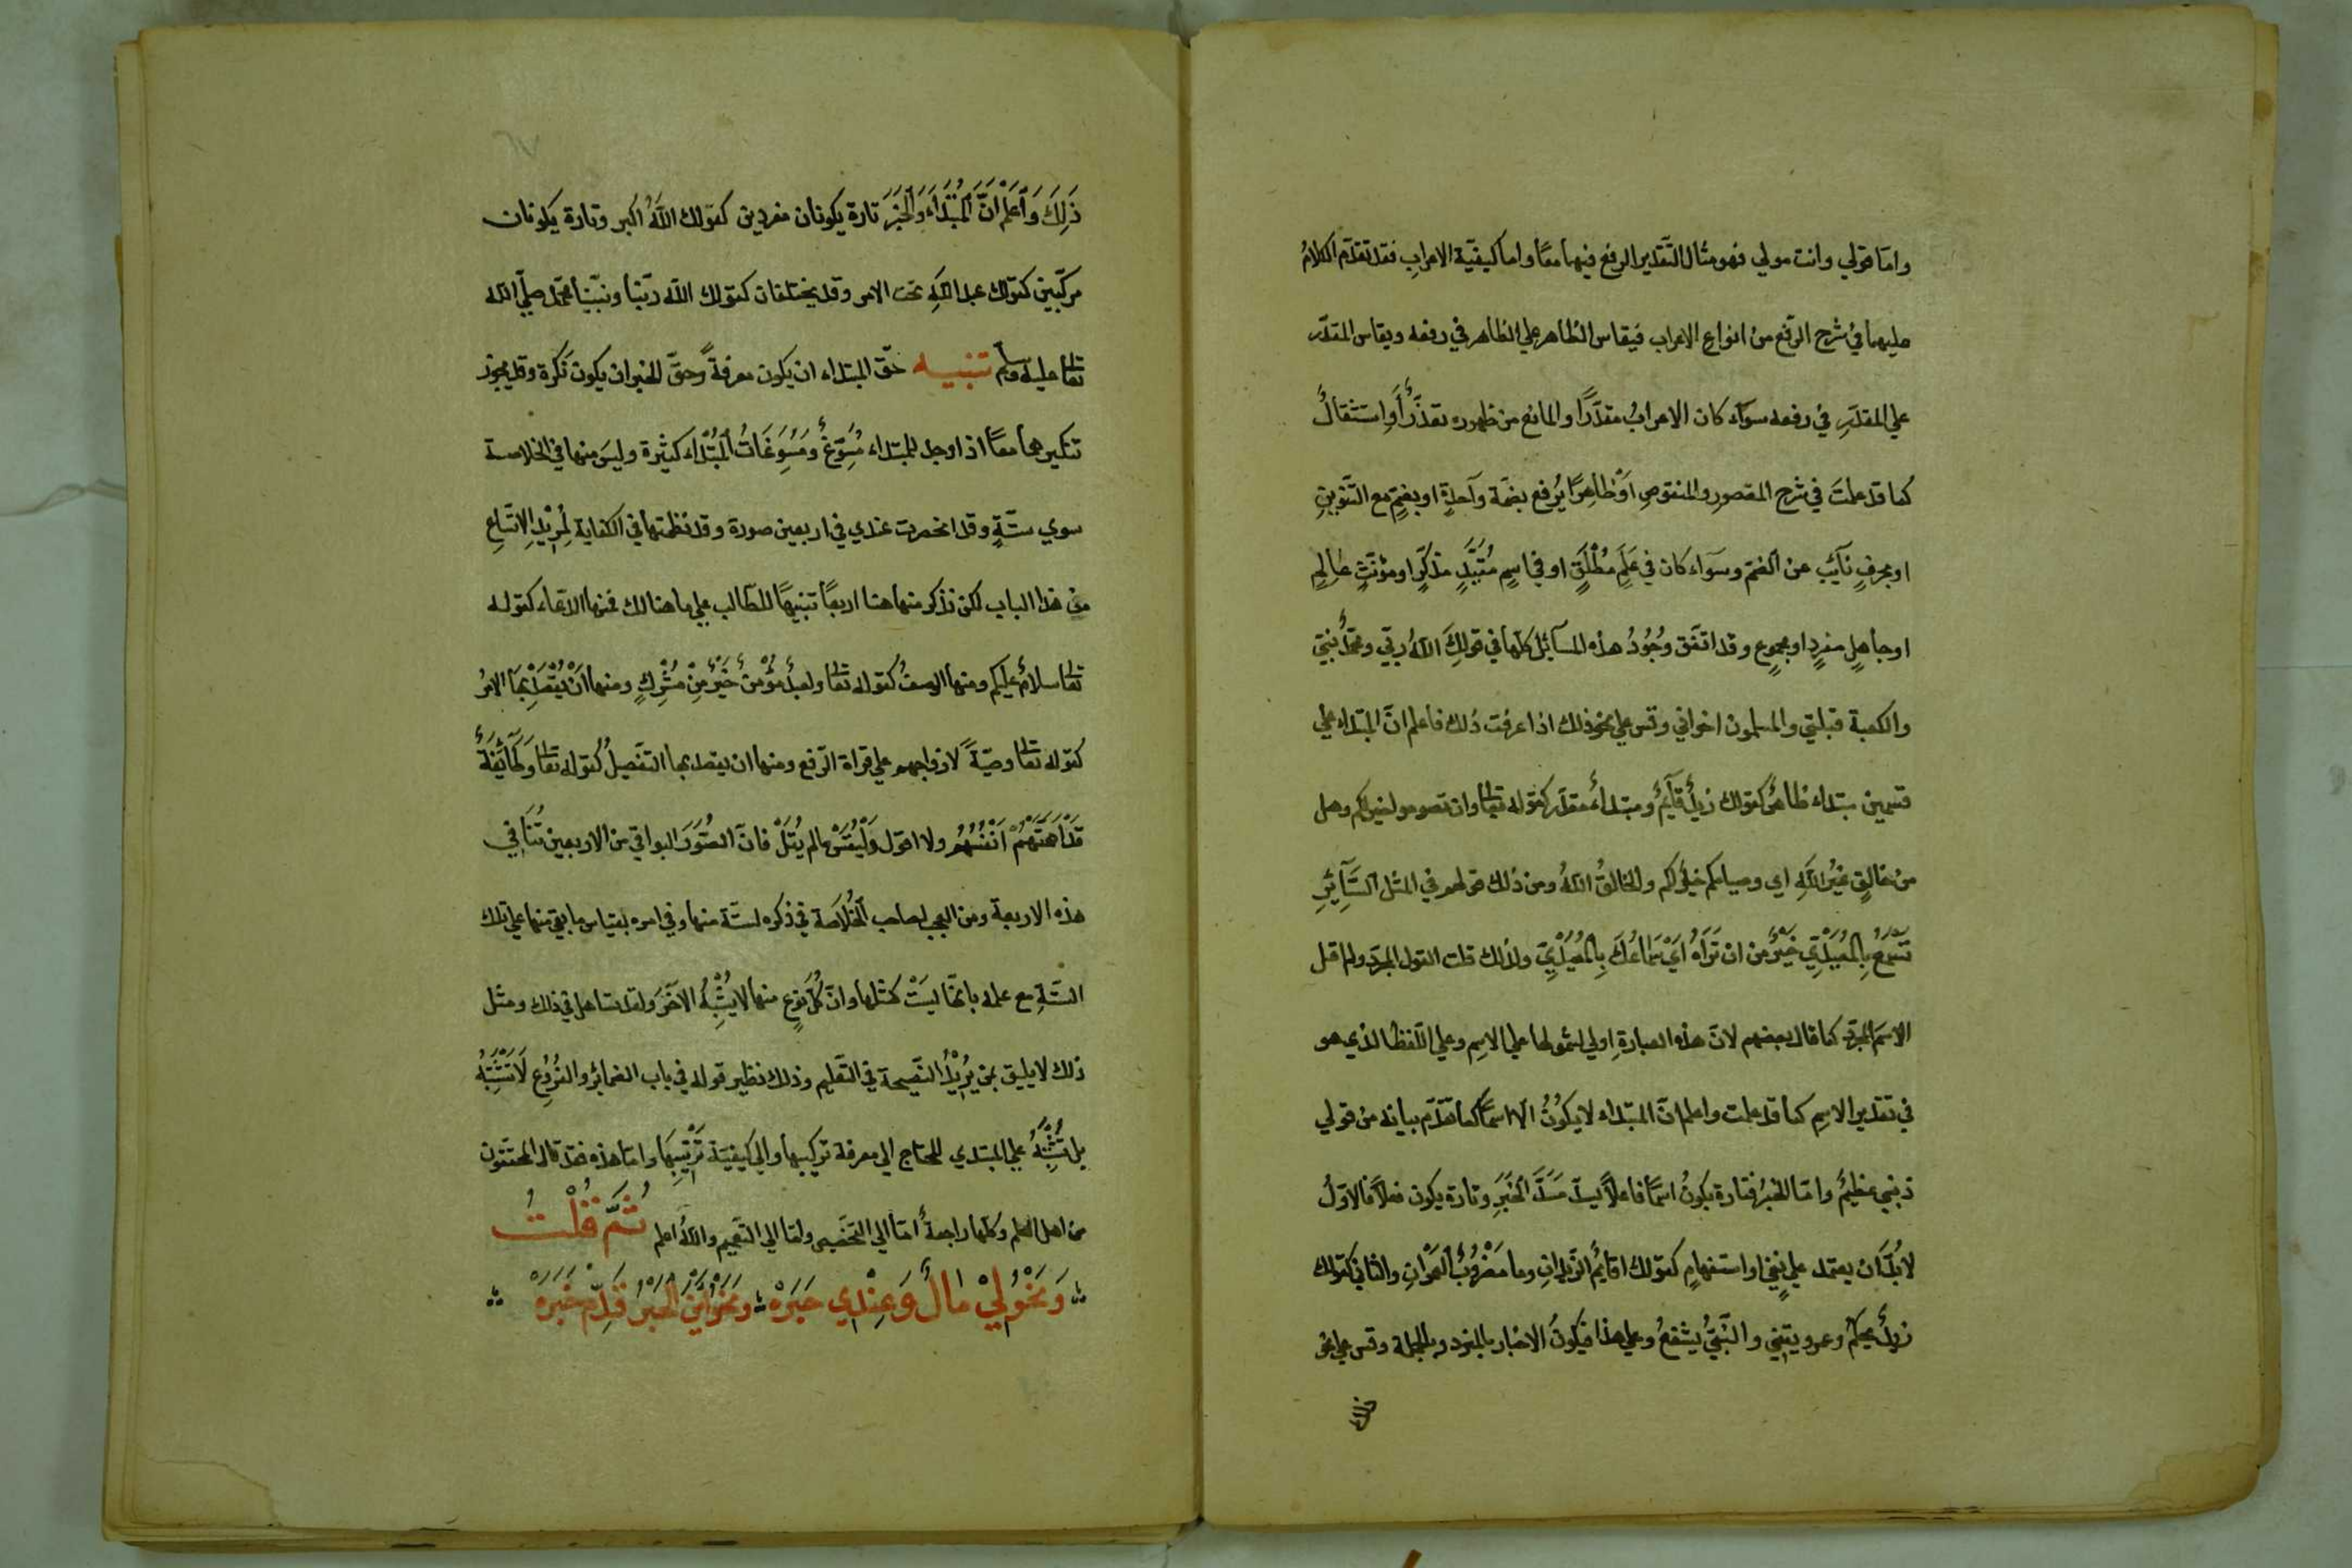 واما قولي وانت مولي فهو مثال التقدير الرفع فيهما معًا واما كيفيّة الاعراب فقد تقدّم الكلامُ
عليهما في شرح الرّفع من انواع الاعراب فيقاس الظاهر علي الظاهر في رفعه ويقاس المقدّر
علي المقدّرِ في رفعه سوآء كان الاعرابُ مقدّرًا والمانع من ظهوره تعذّرٌ أَوِاستثقالٌ
كما قد علمتَ في شرح المقصورِ والمنقوصِ اوْ ظاهِرًا يُرفع بضمّة وآحدةٍ او بضمّةٍ مع التّنوينِ
او بحرفٍ نآئبٍ عن الضمّ وسَوآء كان في عَلَمٍ مُطْلَقٍ او في اسمٍ مُقَيَّدٍ مذكّرٍ او مؤنّثٍ عالمٍ
او جاهلٍ مفردٍ او مجموعٍ وقد اتفق وُجُودُ هذه المسآئل كلّها في قولِكَ اللهُ ربّي ومحمّدٌ نبيّي
والكعبة قبلتي والمسلمون اخواني وقس علي نحو ذلك اذا عرفت ذلك فاعلم انّ المبتداء علي
قسمين مبتداء ظاهرٌ كقولك زيدٌ قآئمٌ ومبتداءٌ مقدّر كقوله تعالى وان تصوموا خير لكم وهل
من خالقٍ غيرُ اللهِ اي وصيامكم خيرٌ لكم والخالقُ اللهُ ومن ذلك قولهم في المثل السّآئرِ
تَسْمَعُ بِالْمُعَيْدِيِّ خَيْرٌ من ان تَرَاهُ اَيْ سَمَاعُكَ بِالْمُعَيْدِيِّ ولذلك قلت القول المجرّد ولم اقل
الاسمَ المجرّد كما قال بعضهم لانّ هذه العبارةِ اولي لشمولها علي الاسم وعلي اللّفظ الذي هو
في تقدير الاسمِ كما قد علمت واعلم انّ المبتداء لا يكُونُ الا اسمًا كما تقدّم بيانه من قولي
ذنبي عظيمٌ وامّا الخبرُ فتارة يكونُ اسمًا فاعلًا يسدّ مَسَدَّ الْخَبَرِ وتارة يكون فعلًا فالاوّلُ
لابُدَّ ان يعتمد علي نفيٍ او استفهامٍ كقولك اقآئمٌ الزّيدانِ وما مَضْرُوبٌ الْعَمْرَانِ والثاني كقولك
زيدٌ يحكمُ وعمرو يتّقي والنّبيُّ يشفعُ وعلي هذا فيكونُ الاخبار بالمفرد وبالجملة وقس علي نحو
ذَلِكَ وَاعْلَمْ انَّ الْمُبْتَدَاءَ وَالْخَبَرَ تارة يكونان مفردين كقولك اللهُ اكبر وتارة يكونان
مركّبين كقولك عبد اللهِ تحت الامر وقد يختلفان كقولك الله ربّنا ونبيّنا محمّد صلّي الله
تعالى عليه وسلم تنبيه حقّ المبتداء ان يكون معرفةً وحقّ الخبر ان يكون نكرة وقد يجوز
تنكيرهما معًا اذا وجد للمبتداء مُسَوِّغٌ وَمُسَوِّغَاتُ الْمُبْتَدَاء كثيرة وليسَ منها في الخلاصة
سوي ستّةٍ وقد انحصرت عندي في اربعين صورة وقد نظمتها في الكفاية لِمُرِيدِ الاتّساعِ
من هذا الباب لكن نذكر منها هنا اربعًا تنبيهًا للطّالب علي ما هنالك فمنها الدّعاء كقوله
تعالى سلامٌ عليكم ومنها الوصفُ كقوله تعالى ولعبدٌ مؤْمنٌ خَيْرٌ مِنْ مُشْرِكٍ ومنها اَنْ يُقْصَدَ بِهَا الامرُ
كقوله تعالى وصيّةٌ لازواجهم علي قراة الرّفع ومنها ان يقصد بها التفصيلُ كقوله تعالى وَطَآئِفَةٌ
قَدْ اَهَمَّتْهُمْ اَنْفُسُهُمْ ولا اقول وَلْيُقَسْ مالم يُقَلْ فانّ الصُّوَرَ البواقي من الاربعين تُنَافِي
هذه الاربعة ومن العجب لصاحب الْخُلَاصَة في ذكره لستّة منها وفي امره بقياس ما بقي منها علي تلك
السّتّةِ مع علمه بانّها ليسَتْ كمثلها وانّ كُلَّ نوعٍ منها لا يُشْبِهُ الآخَرَ ولقد تساهل في ذلك ومثل
ذلك لا يليق بمن يُرِيدُ النّصيحة في التّعليم وذلك نظير قوله في باب الضمائر والفُرُوع لَا تَشْتَبِهُ
بل تُشْبِهُ علي المبتدي المحتاج الي معرفة تركيبها والي كيفيّة تَرْتِيبِهَا وامّا هذه فقد قال المحقّقون
من اهل العلم وكلّها راجعةٌ امّا الي التخصيص وامّا الي التّعميم واللهُ اعلم ثُمَّ قُلْتُ
وَنَحْوُ لِيْ مَالٌ وَعِنْدِي حِبَرَهْ وَنَحْوُ اَيْنَ الْخَبَرُ قَدِّمْ خَبَرَهْ